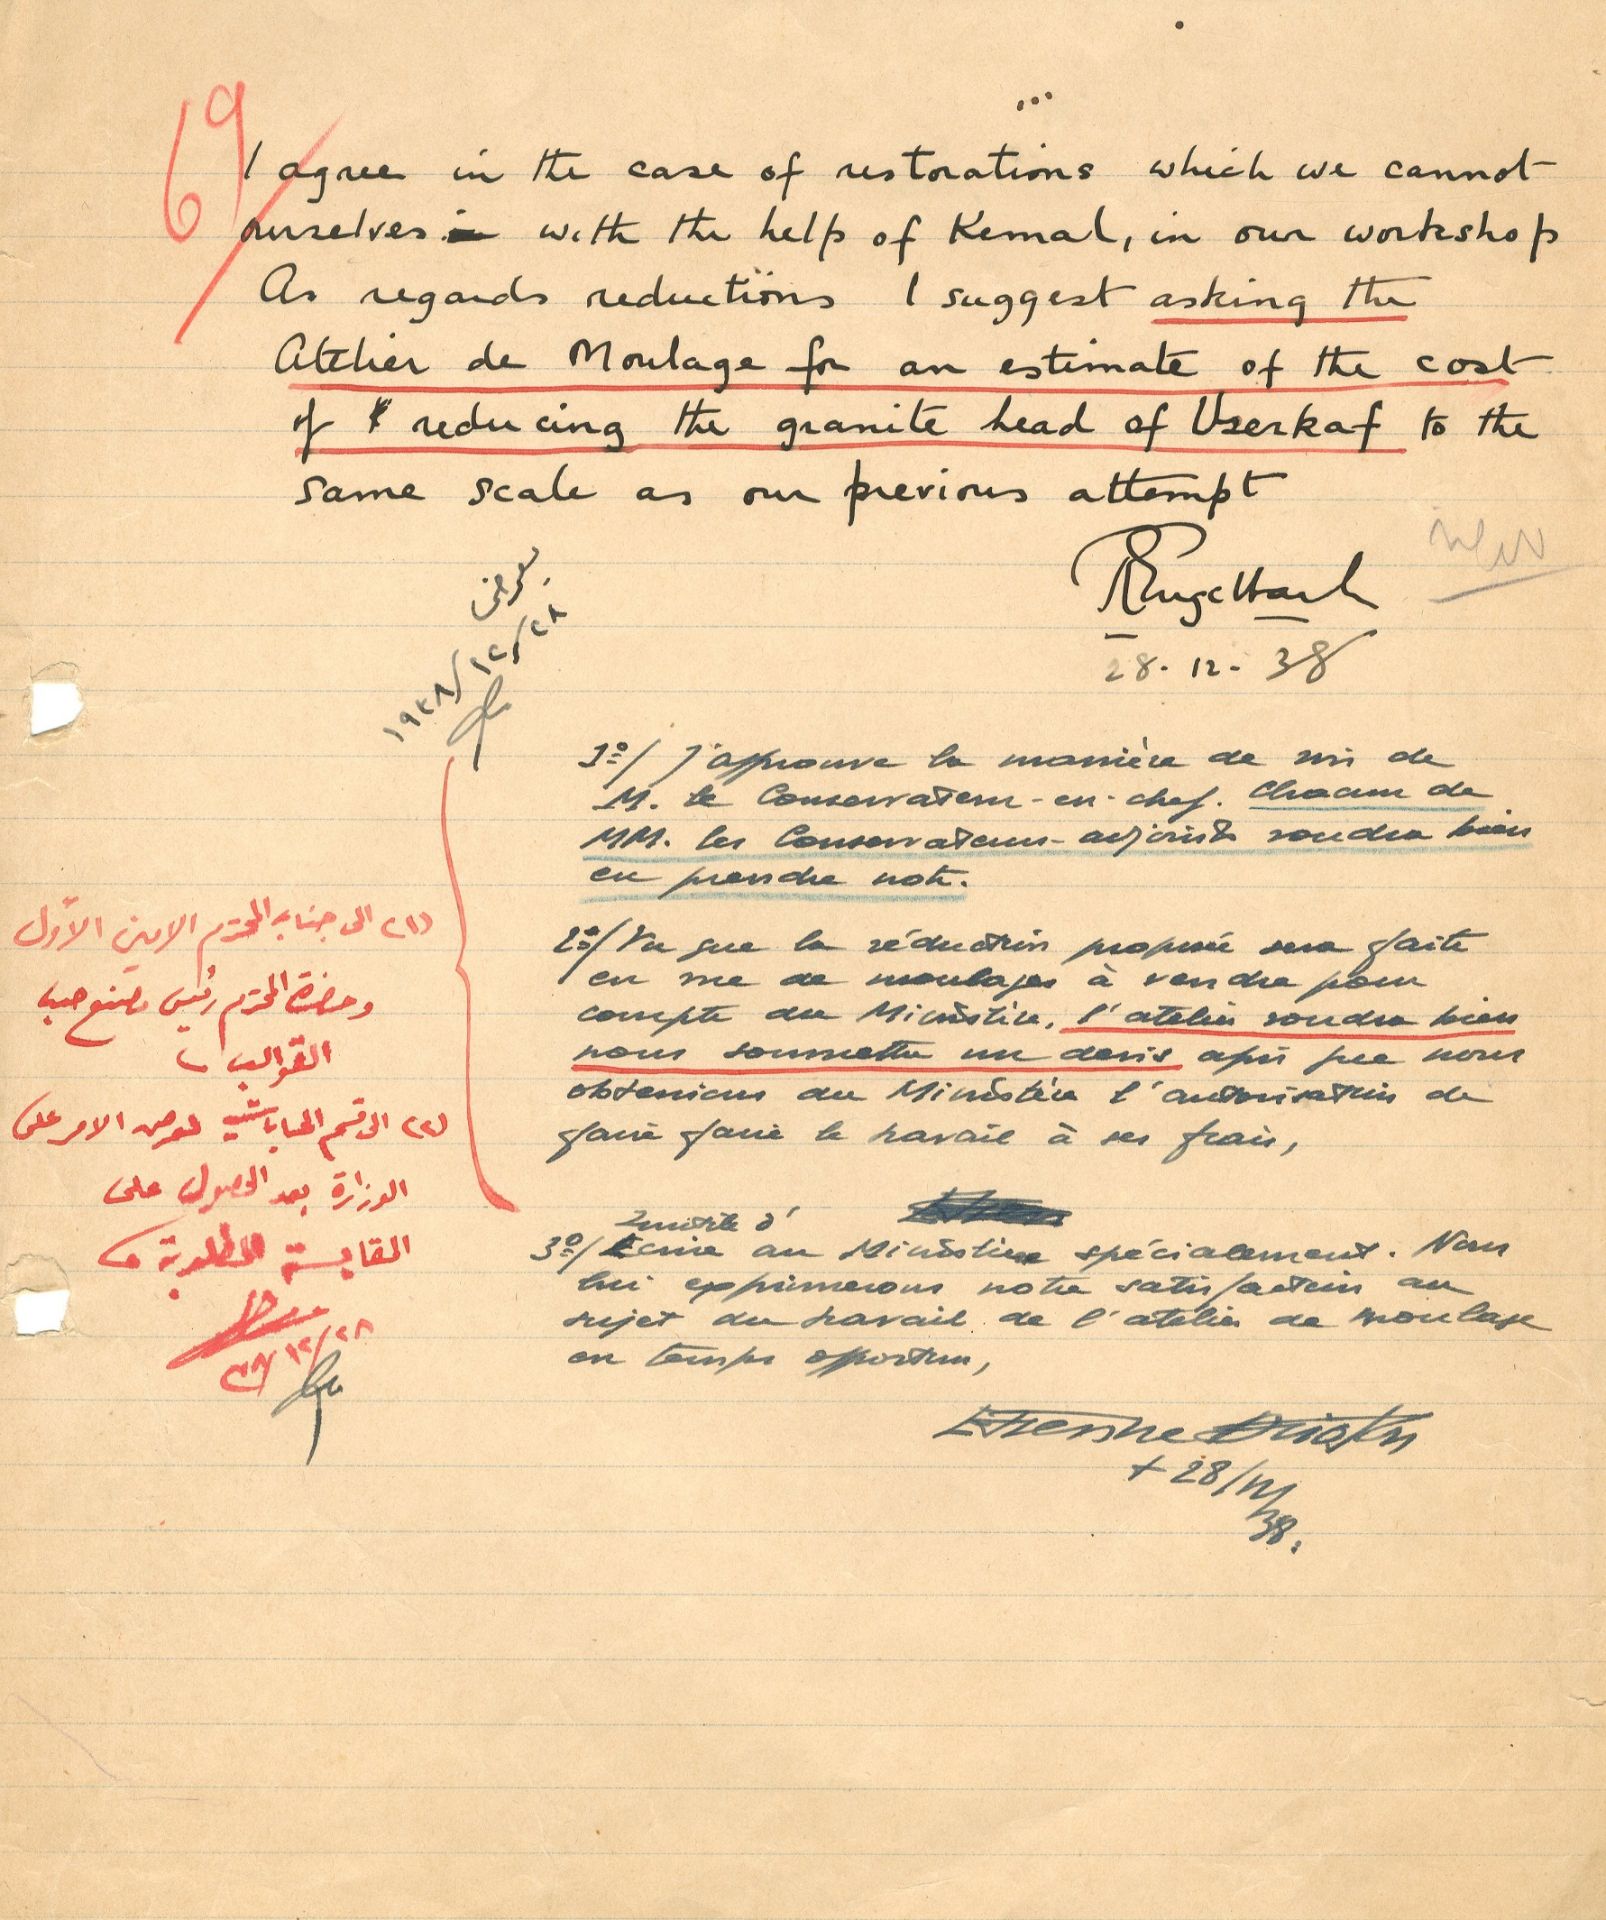 69
I agree in the case of restorations which we cannot
ourselves with the help of Kemal, in our workshop
As regards reductions I suggest asking the
Atelier de Moulage for an estimate of the cost
of reducing the granite head of Userkaf to the
same scale as our previous attempt
REngelbach
28.12.38
يعرض
١٩٣٨/١٢/٢٨
1º/ J'approuve la manière de voir de
M. le Conservateur-en-chef. Chacun de
MM. les Conservateurs-adjoints voudra bien
en prendre note.
2º/ Vu que la réduction proposée sera faite
en vue de moulages à vendre pour
compte du Ministère, l'atelier voudra bien
nous soumettre un devis afin que nous
obtenions du Ministère l'autorisation de
faire faire le travail à ses frais,
Inutile d'
3º/ Ecrire au Ministère spécialement. Nous
lui exprimerons notre satisfaction au
sujet du travail de l'atelier de moulage
en temps opportun,
Etienne Drioton
28/12/38.
(١) الى جناب المحترم الامين الأول
وحضرة المحترم رئيس مصنع صب
القوالب
(٢) الى قسم الحسابات لعرض الامر على
الوزارة بعد الحصول على
المقايسة المطلوبة
٣٨/١٢/٢٨